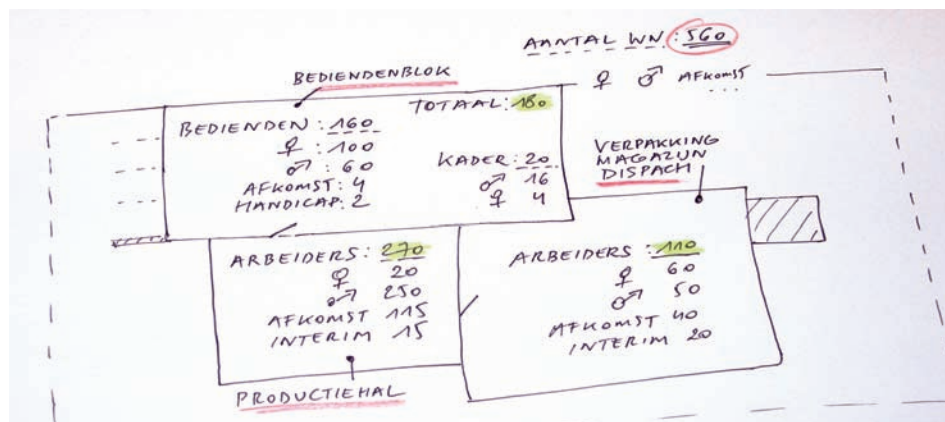 AANTAL WN: 560
♀ ♂ AFKOMST
...
BEDIENDENBLOK
TOTAAL: 180
BEDIENDEN: 160
♀: 100
♂: 60
AFKOMST: 4
HANDICAP: 2
KADER: 20
♂ 16
♀ 4
VERPAKKING
MAGAZIJN
DISPACH
ARBEIDERS: 270
♀ 20
♂ 250
AFKOMST 115
INTERIM 15
ARBEIDERS: 110
♀ 60
♂ 50
AFKOMST 40
INTERIM 20
PRODUCTIEHAL